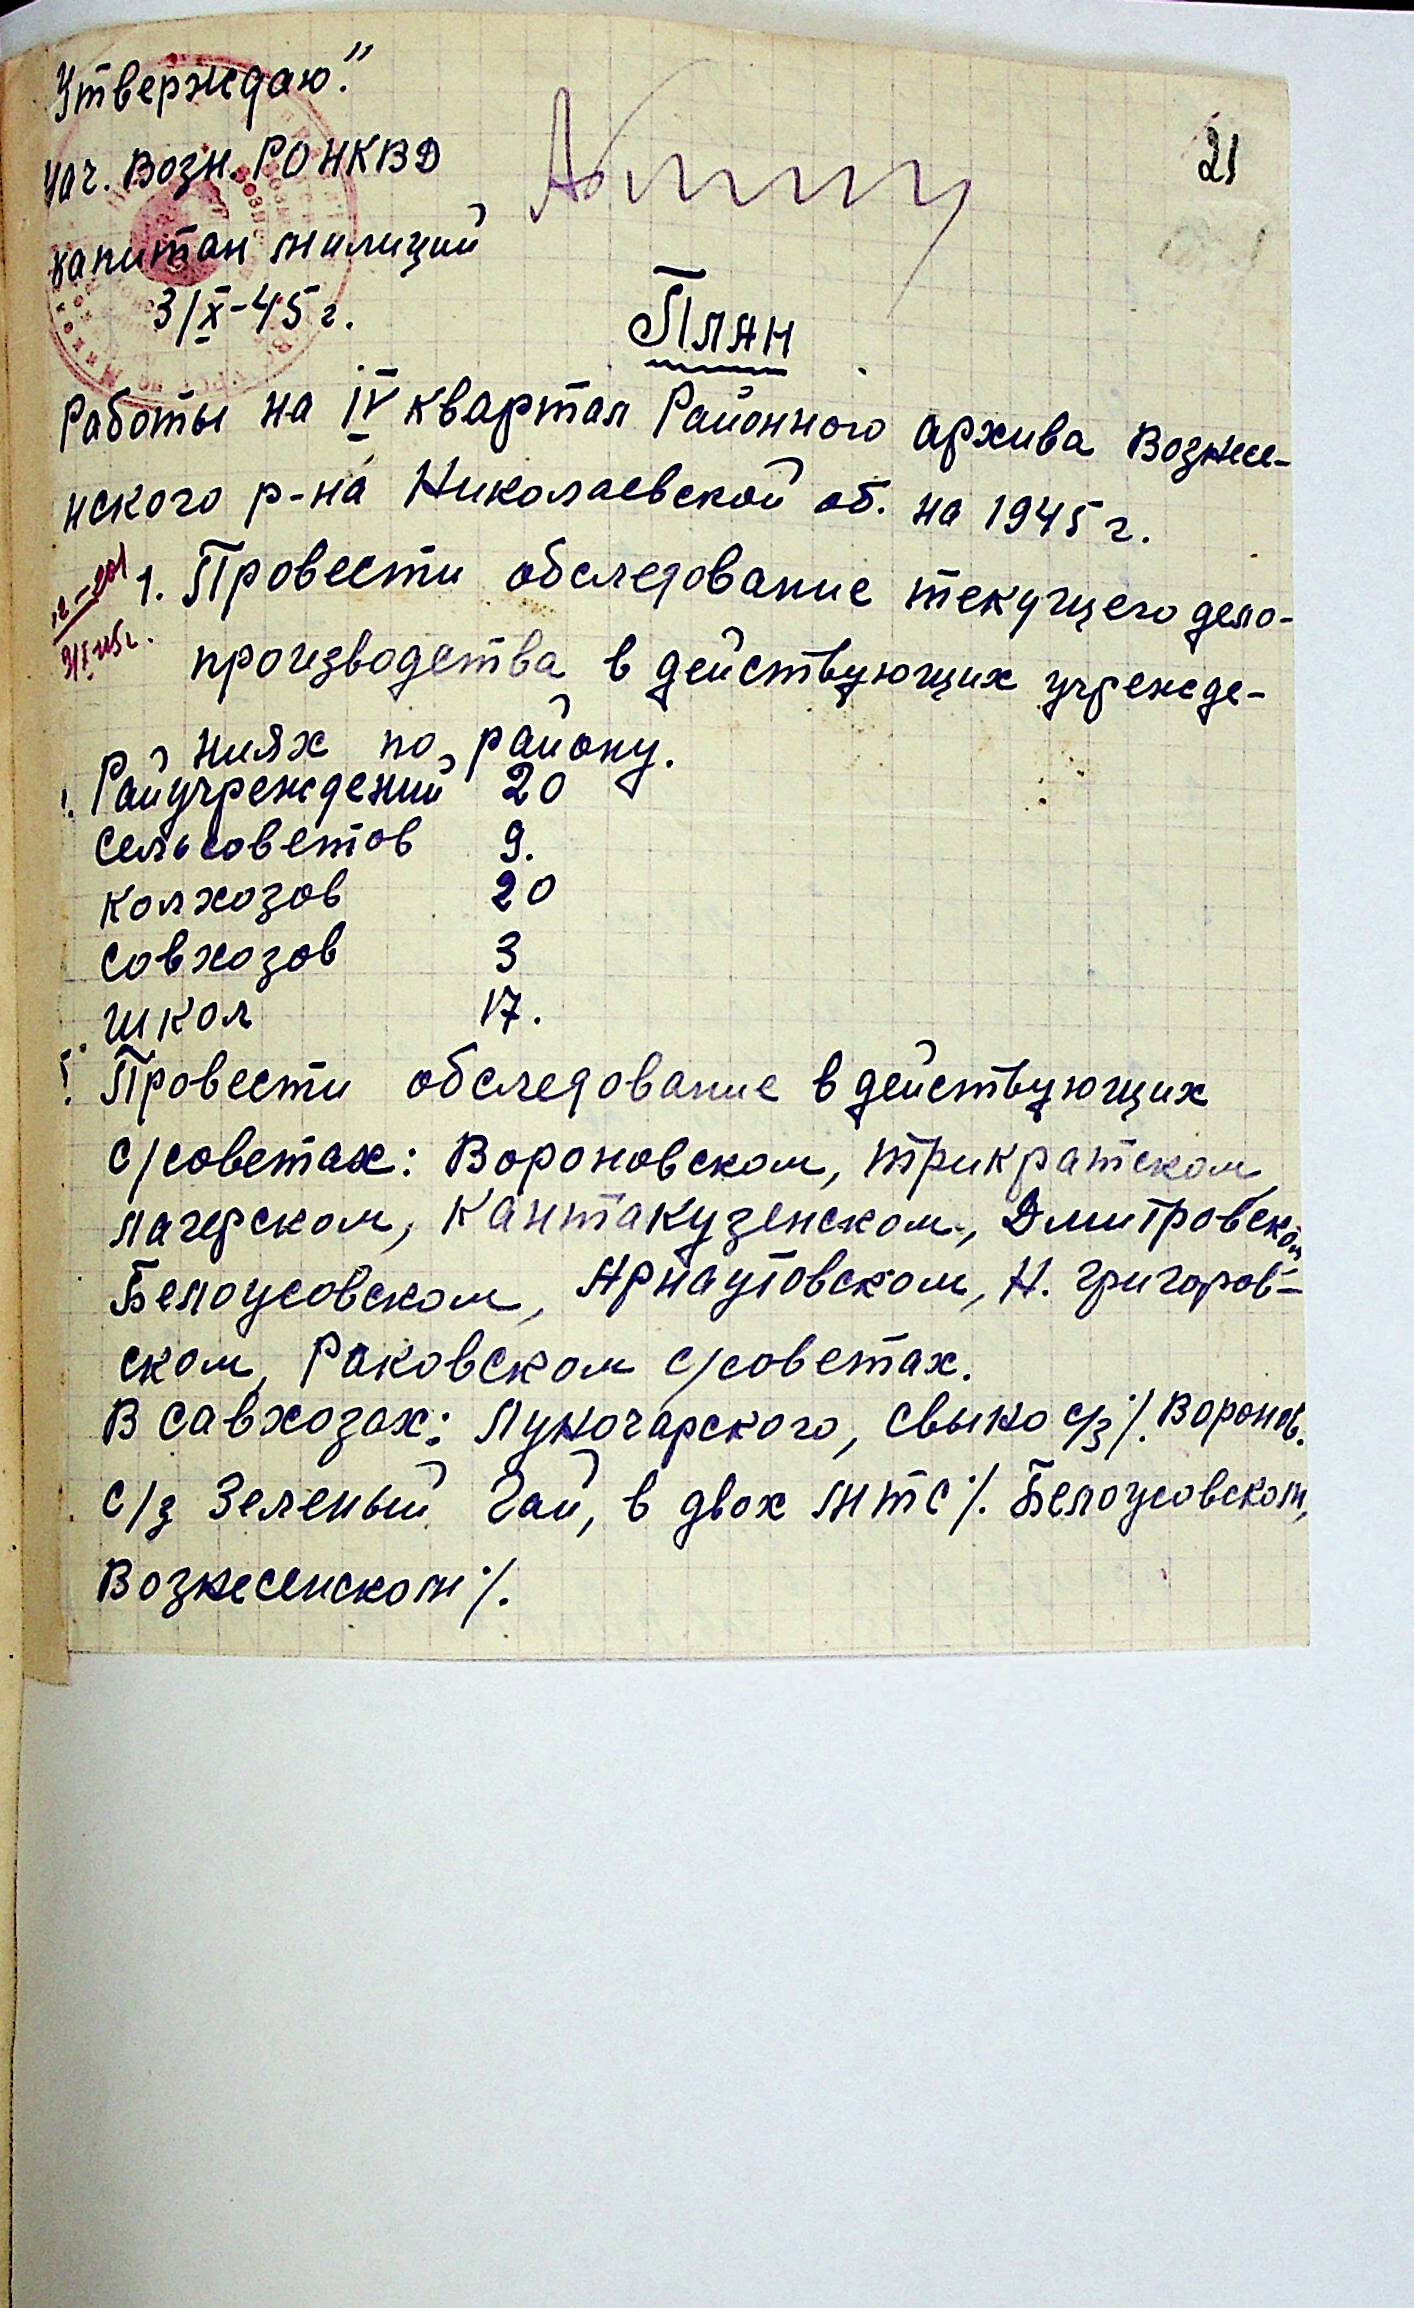 Утверждаю."
нач. Возн. РОНКВД
капитан милиций
3/X-45 г.
21
План
Работы на IV квартал Районного архива Вознесе-
нского р-на Николаевской об. на 1945 г.
1. Провести обследование текущего дело-
производства в действующих учрежде-
ниях по району.
Райучреждений 20
Сельсоветов 9.
Колхозов 20
Совхозов 3
Школ 17.
Провести обследование в действующих
с/советах: Вороновском, Трикратском,
Лагерском, Кантакузенском, Дмитровском
Белоусовском, Арнаутовском, Н. Григоров-
ском, Раковском с/советах.
В савхозах: Луночарского, с/з Воронов.
с/з Зеленый Гай, в двох МТС /. Белоусовском,
Вознесенском /.